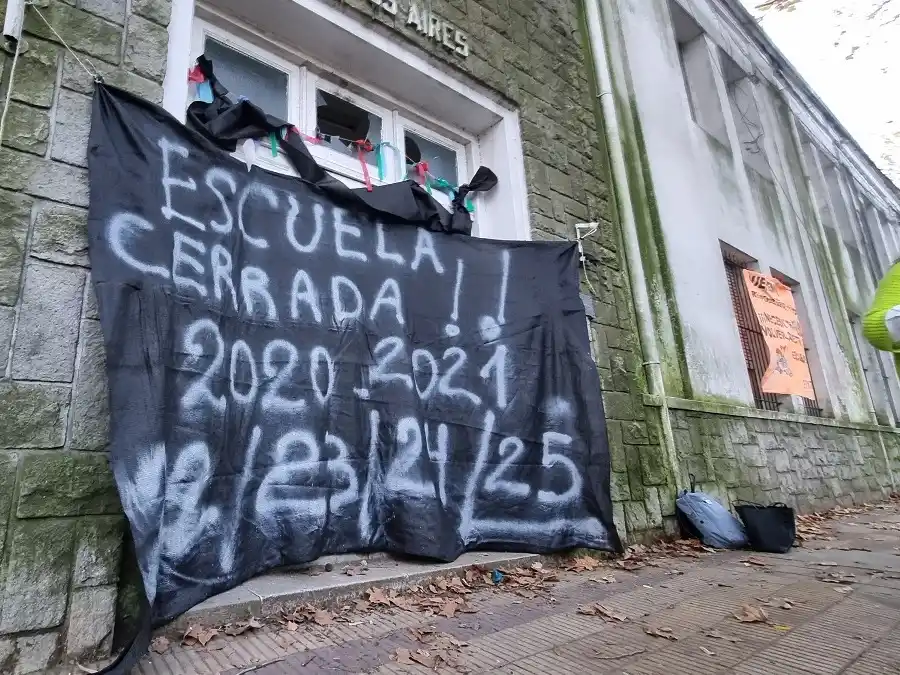 OS AIRES
ESCUELA
CERRADA !!
2020.2021
/2/23/24/25